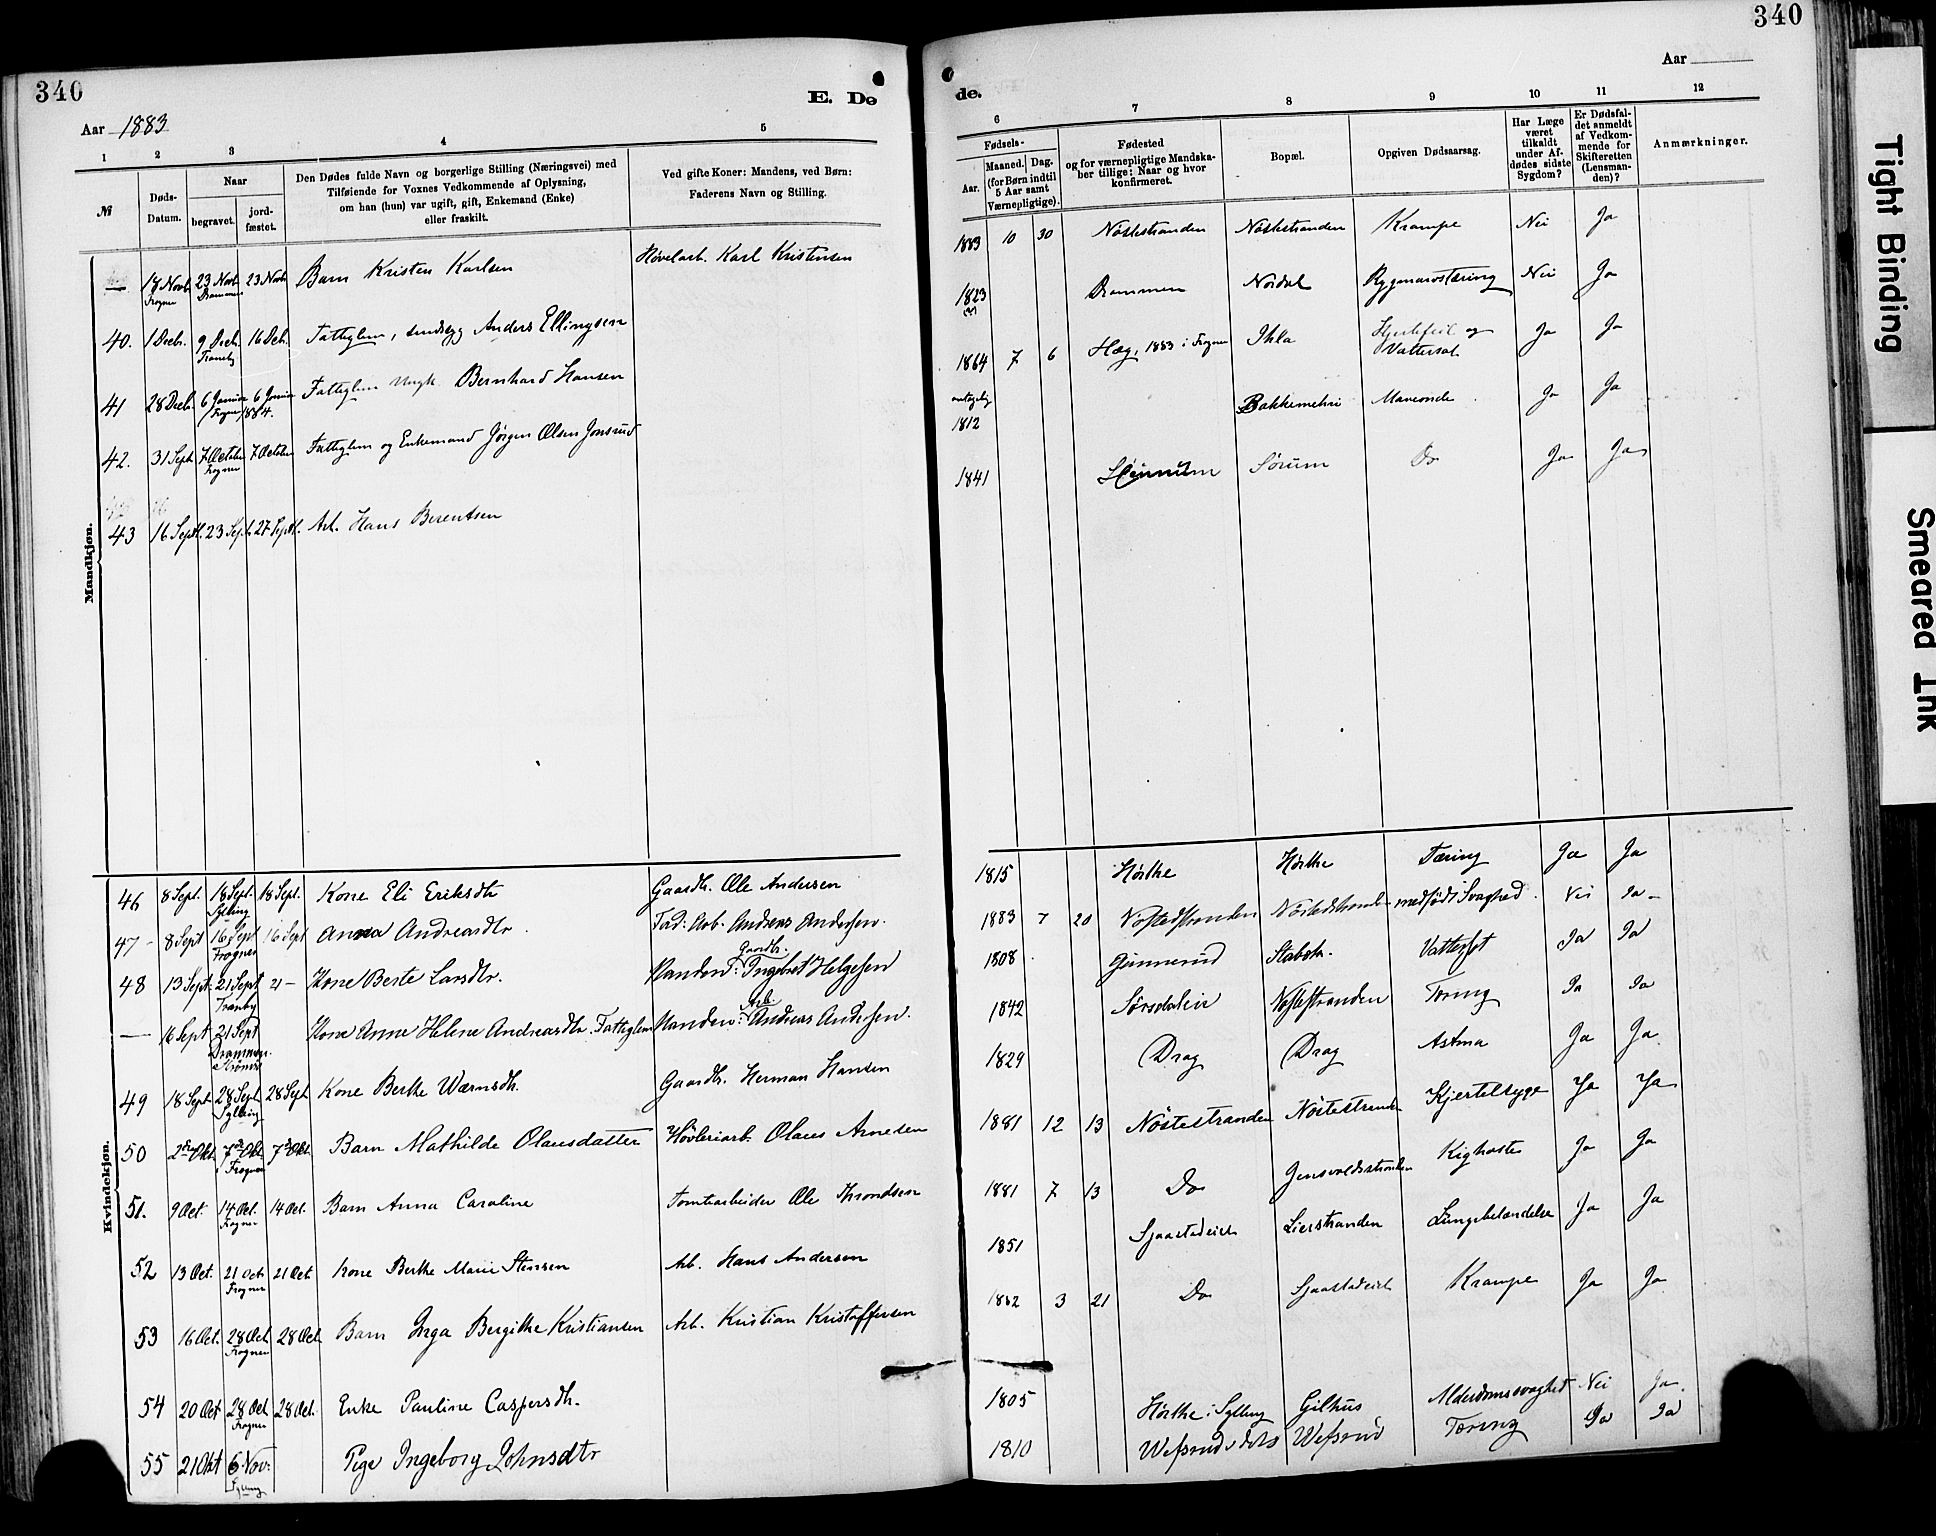 340
E. Dø
Aar 1883
1 2 3 4 5
№
Døds-Datum.
Naar
begravet.
jord-fæstet.
Den Dødes fulde Navn og borgerlige Stilling (Næringsvei) med
Tilføiende for Voxnes Vedkommende af Oplysning,
om han (hun) var ugift, gift, Enkemand (Enke)
eller fraskilt.
Ved gifte Koner: Mandens, ved Børn:
Faderens Navn og Stilling.
Mandkjøn.
— 18 Novb. Frogner 23 Novb. Drammen 23 Novb. Barn Kristen Karlsen Høvelarb. Karl Kristensen
40. 1 Decb. 9 Decb. Tranby 16 Decb. Fattiglem, Anders Ellingsen
41 28 Decb. 6 Januar Frogner 6 Januar 1884. Fattiglem Ungk. Bernhard Hansen
42. 31 Sept. 7 October Frogner 7 October Fattiglem og Enkemand Jørgen Olsen Jonsrud
43 16 Septb. 23 Sept. 27 Septb. Arb. Hans Berentsen
Kvindekjøn.
46 8 Sept. 18 Sept. Sylling 18 Sept. Kone Eli Eriksdtr Gaardbr. Ole Andersen
47 - 8 Sept 16 Sept Frogner 16 Sept Anna Andreasdtr. Fad: Arb. Andreas Andersen.
48 13 Sept. 21 Sept Tranby 21 - Kone Berte Larsdtr. Manden: Gaardbr. Ingebret Helgesen
— 16 Sept 21 Sept Drammen Strømsø Kone Anne Helene Andreasdtr. Fattiglem Manden: Arb. Andreas Andersen.
49 18 Sept 28 Sept Sylling 28 Sept Kone Berthe Wærnsdtr. Gaardbr. Herman Hansen
50 2de Okt. 7de Okt. Frogner 7de Okt. Barn Mathilde Olausdatter Høvleriarb. Olaus Arnesen
51. 9 Oct. 14 Oct. Frogner 14 Oct. Barn Anna Caroline Tomtearbeider Ole Throndsen
52 13 Oct. 21 Oct Frogner 21 Oct Kone Berthe Marie Stensen Arb. Hans Andersen
53 16 Oct. 28 Oct. Frogner 28 Oct. Barn Inga Bergithe Kristiansen Arb. Kristian Kristoffersen
54 20 Oct 28 Oct. Frogner 28 Oct. Enke Pauline Caspersdtr.
55 21 Okt 6 Nov: Sylling Pige Ingeborg Johnsdtr
340
Aar
de.
6 7 8 9 10 11 12
Fødsels-
Aar.
Maaned. Dag.
(for Børn indtil
5 Aar samt
Værnepligtige).
Fødested
og for værnepligtige Mandska-
ber tillige: Naar og hvor
konfirmeret.
Bopæl.
Opgiven Dødsaarsag.
Har Læge
været
tilkaldt
under Af-
dødes sidste
Sygdom?
Er Dødsfal-
det anmeldt
af Vedkom-
mende for
Skifteretten
(Lensman-
den)?
Anmærkninger.
1883 10 30 Nøstestranden Nøstestranden Krampe Nei Ja
1823 Drammen Nordal Rygmarvstæring Nei Ja
1864 7 6 Hæg, 1883 i Frogner Ihla Hjertefeil og Vattersot Ja Ja
antagelig 1812 Bakkemehri Maveonde Ja Ja
1841 Sørum Do Ja Ja
1815 Hørthe Hørthe Tæring Ja Ja
1883 7 20 Nøstedstranden Nøstedstranden medfødt Svaghed. Nei Ja -
1808 Gunnerud Stabek. Vattersot Ja Ja
1842 Sørsdaleie Nøstestranden Tæring Ja Ja
1829 Drag Drag Astma Ja Ja.
1881 12 13 Nøstestranden Nøstestranden Kjertelsyge Ja Ja
1881 7 13 Do Gensvoldsstranden Kighoste Ja Ja
1851 Sjaastadeiet Lierstranden Lungebetændelse Ja Ja
1882 3 21 Do Sjaastadeiet Krampe Ja Ja
1805 Hørthe i Sylling Gilhus Alderdomssvaghed Nei Ja.
1810 Tæring Ja Ja
Tight Binding
Smeared Ink